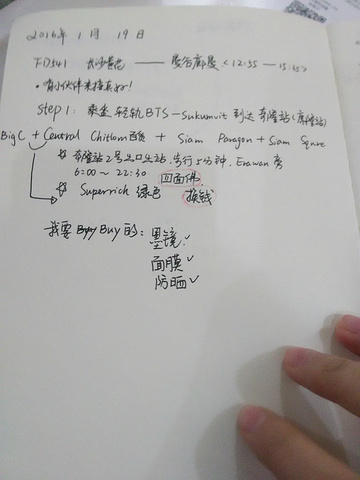 2016年 1月 19日
FD541 长沙黄花 —— 曼谷廊曼 <12:55 — 15:25>
• 有小伙伴来接真好!
Step 1: 乘坐 轻轨 BTS — Sukumvit 到达 奇隆站
BigC + Central Chitlom 百货 + Siam Paragon + Siam Squre
☆ 奇隆站 2号出口出站, 步行5分钟, Erawan 旁
6:00 ~ 22:30 四面佛
☆ Superrich 绿色 换钱
我要 Buy 的: 墨镜 ✓
面膜 ✓
防晒 ✓